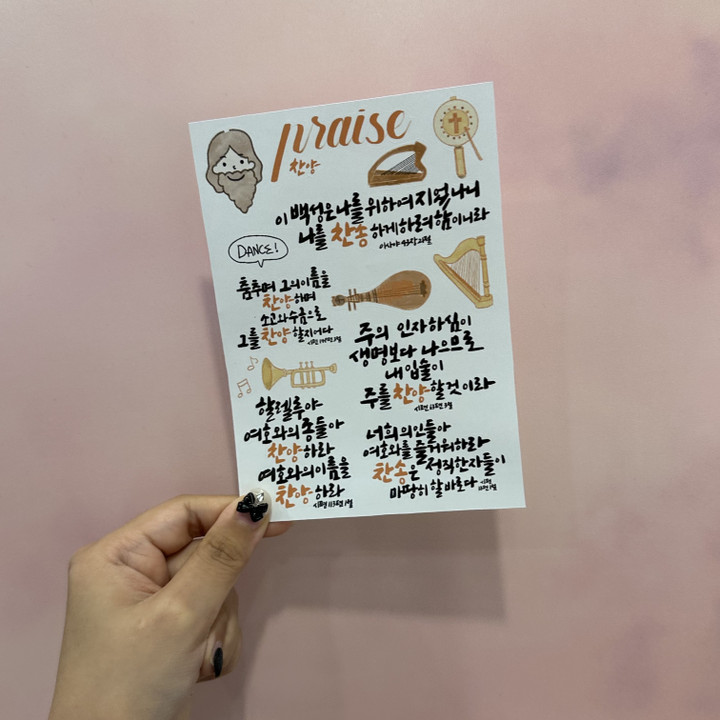 praise
찬양
이 백성은 나를 위하여 지었나니
나를 찬송 하게 하려 함이니라
이사야 43장 21절
DANCE!
춤추며 그의 이름을
찬양하며
소고와 수금으로
그를 찬양할지어다
시편 149편 3절
주의 인자하심이
생명보다 나으므로
내 입술이
주를 찬양할 것이라
시편 63편 3절
할렐루야
여호와의 종들아
찬양하라
여호와의 이름을
찬양하라
시편 113편 1절
너희 의인들아
여호와를 즐거워하라
찬송은 정직한 자들이
마땅히 할 바로다
시편
33편 1절